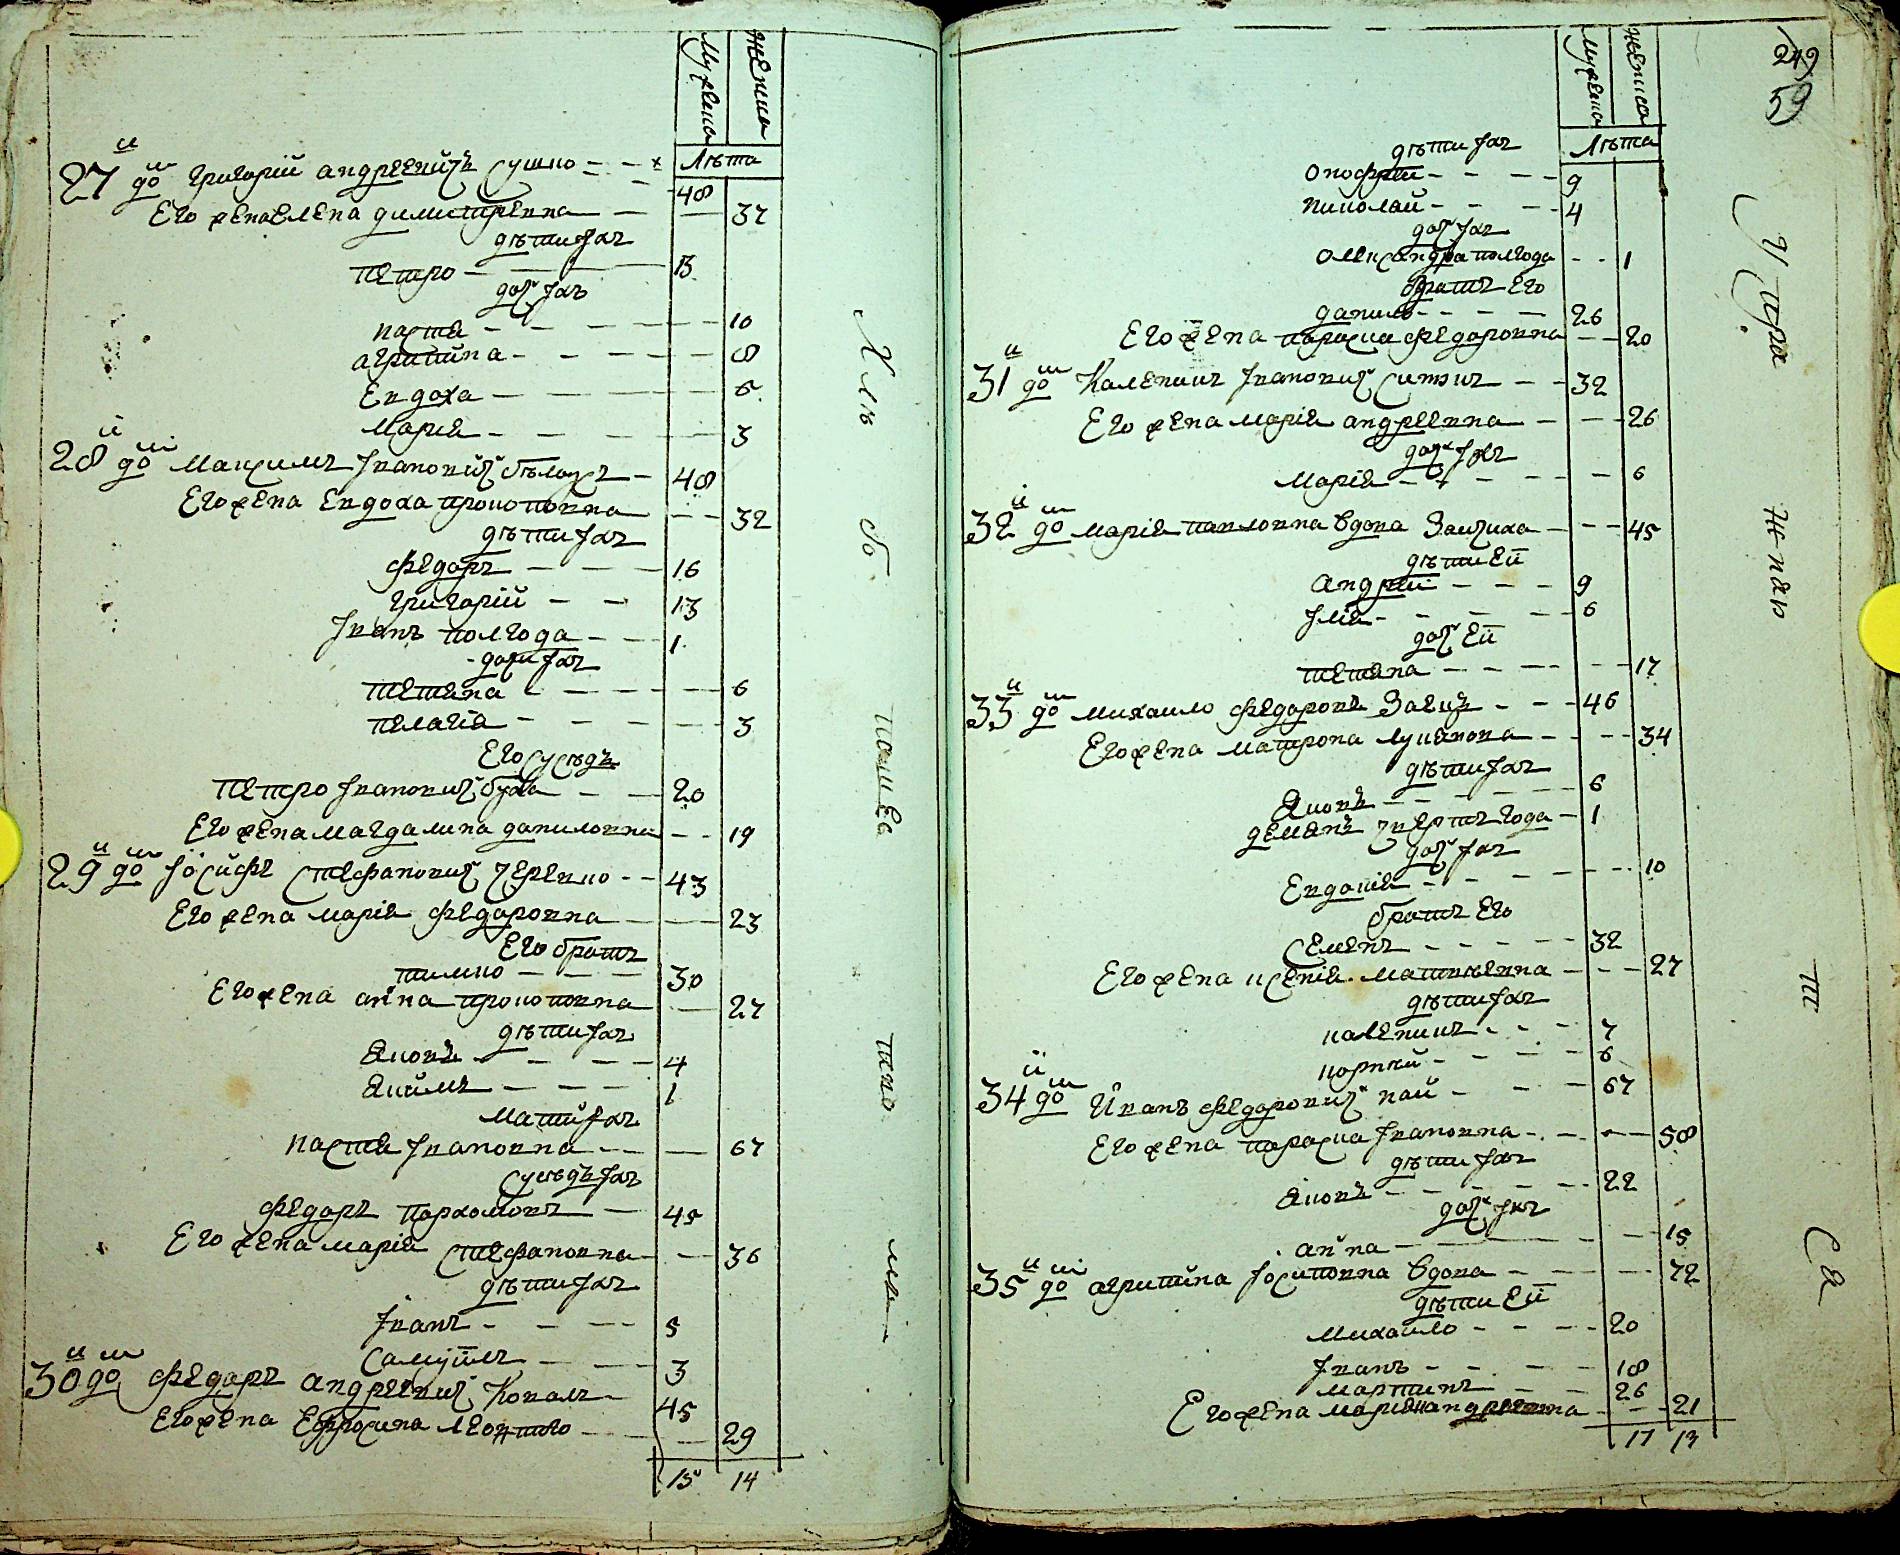 мужеска
женска
лѣта
27й до͠м григорій андрѣевичъ сушко - - 48
Его жена Елена димитревна - - 37
дѣти Јхъ
петро - - 13
доч Јхъ
настя - - 10
агрипина - - 8
Евдоха - - 6
Марія - - 3
28й до͠м Максимъ Јвановичъ бѣлоусъ - 48
Его жена Евдоха прокоповна - - 32
дѣти Јхъ
Федоръ - - 16
григорій - - 13
Јванъ полгода - - 1
дочи Јхъ
тетяна - - 6
пелагія - - 3
Его сусѣдъ
петро Јвановичъ - - 20
Его жена магдалина даниловна - - 19
29й до͠м Јосифъ стефановичъ - - 43
Его жена марія Федоровна - - 23
Его братъ
тимко - - 30
Его жена анна прокоповна - - 27
дѣти Јхъ
Яковъ - - 4
Якимъ - - 1
Мати Јхъ
настя Јвановна - - 67
сусѣдъ Јхъ
Федоръ пархомовъ - 45
Его жена марія стефановна - - 36
дѣти Јхъ
Јванъ - - 5
Самуилъ - - 3
30й до͠м Федоръ андрѣевичъ Коваль - 45
Его жена Ефросина - - 29
15 14
Хлѣ
бо
пашеа
тако
249
59
мужеска
женска
лѣта
дѣти Јхъ
онофрій - - 9
николай - - 4
доч Јхъ
олександра полгода - - 1
братъ Его
данило - - 26
Его жена параска Федоровна - - 20
31й до͠м Каленикъ Јвановичъ - - 32
Его жена марія андрѣевна - - 26
доч Јхъ
марія - - 6
32й до͠м марія павловна вдова - - 45
дѣти Ей
андрей - - 9
Јлія - - 6
доч Ей
тетяна - - 17
33й до͠м михаило Федоровъ Заецъ - - 46
Его жена матрона лукянова - - 34
дѣти Јхъ
Яковъ - - 6
демянъ чверть года - 1
доч Јхъ
Евдокія - - 10
братъ Его
семенъ - - 32
Его жена ксенія матвѣевна - - 27
дѣти Јхъ
каленикъ - - 7
корнѣй - - 6
34й до͠м Иванъ Федоровичъ - - 67
Его жена параска Јвановна - - 58
дѣти Јхъ
Яковъ - - 22
доч Јхъ
анна - - 15
35й до͠м агрипина Јосиповна вдова - - 72
дѣти Ей
михаило - - 20
Јванъ - - 18
мартинъ - - 26
Его жена марія андрѣевна - - 21
17 13